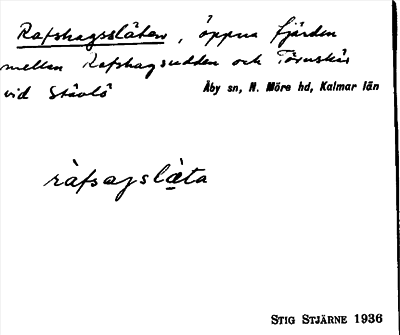 Rafshagssläten, öppna fjärden
mellan Rafshagsudden och Törnskär
vid Stävlö
Åby sn, N. Möre hd, Kalmar län
ràfsagslæta
STIG STJÄRNE 1936